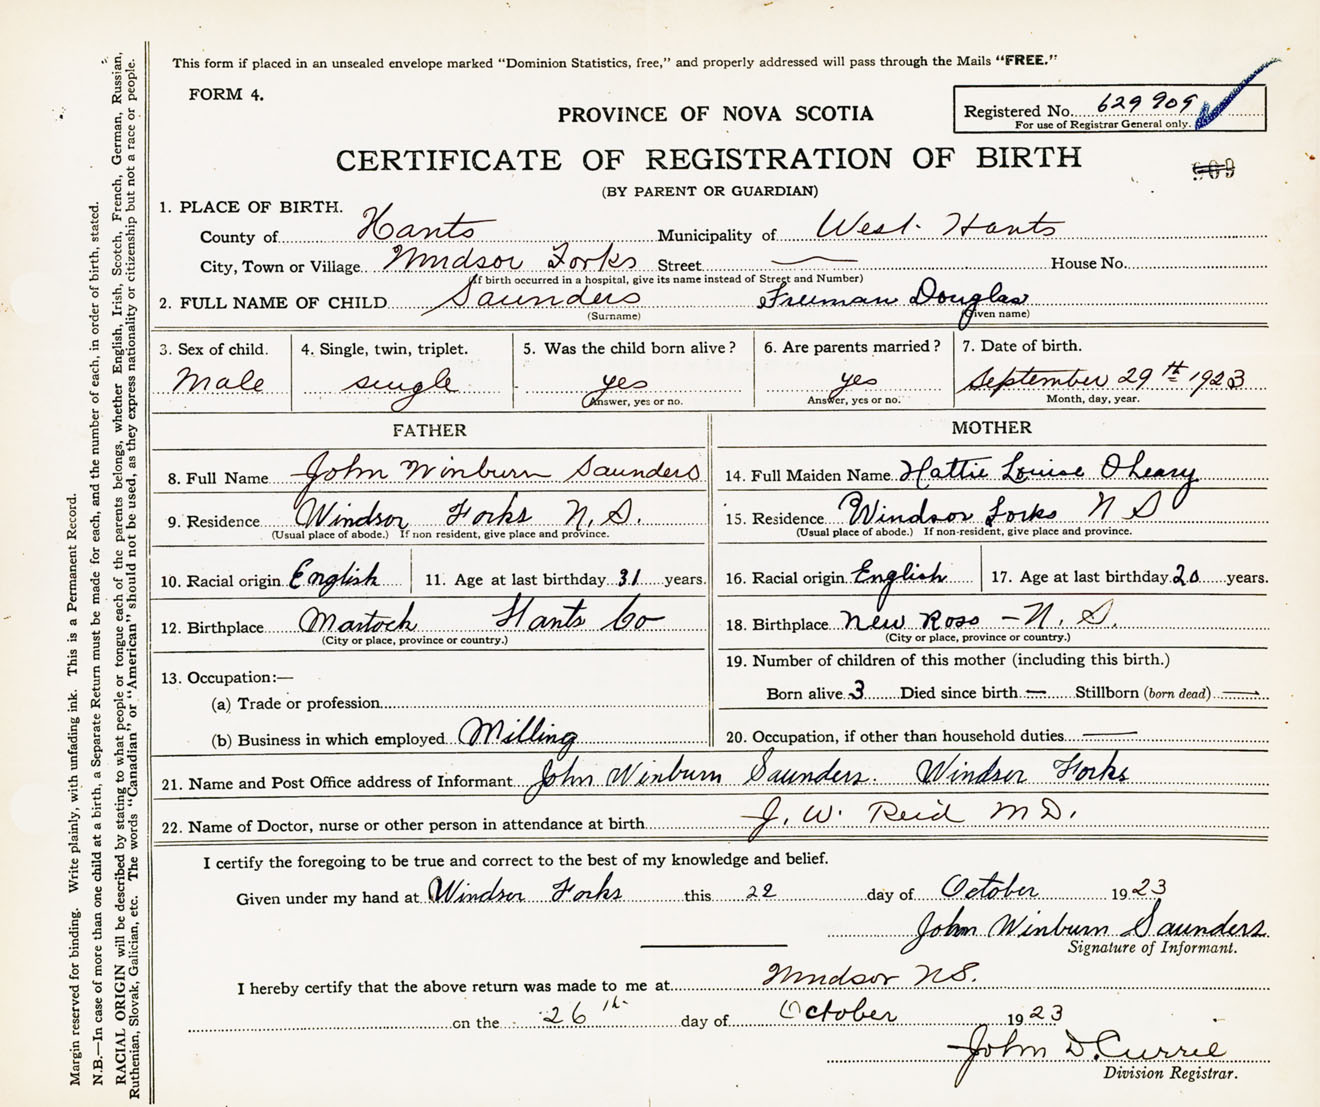 This form if placed in an unsealed envelope marked "Dominion Statistics, free," and properly addressed will pass through the Mails "FREE."
FORM 4.
PROVINCE OF NOVA SCOTIA
Registered No. 629 909
For use of Registrar General only.
CERTIFICATE OF REGISTRATION OF BIRTH
909
(BY PARENT OR GUARDIAN)
1. PLACE OF BIRTH.
County of Hants Municipality of West Hants
City, Town or Village Windsor Forks Street — House No.
(If birth occurred in a hospital, give its name instead of Street and Number)
2. FULL NAME OF CHILD Saunders Freeman Douglas
(Surname) (Given name)
3. Sex of child. 4. Single, twin, triplet. 5. Was the child born alive? 6. Are parents married? 7. Date of birth.
Male single yes yes September 29th 1923
Answer, yes or no. Answer, yes or no. Month, day, year.
FATHER MOTHER
8. Full Name John Winburn Saunders 14. Full Maiden Name Hattie Louise O'Leary
9. Residence Windsor Forks N.S. 15. Residence Windsor Forks N S
(Usual place of abode.) If non resident, give place and province. (Usual place of abode.) If non-resident, give place and province.
10. Racial origin English 11. Age at last birthday 31 years. 16. Racial origin English 17. Age at last birthday 20 years.
12. Birthplace Martock Hants Co 18. Birthplace New Ross - N. S.
(City or place, province or country.) (City or place, province or country.)
13. Occupation:— 19. Number of children of this mother (including this birth.)
(a) Trade or profession Born alive 3 Died since birth — Stillborn (born dead) —
(b) Business in which employed Milling 20. Occupation, if other than household duties —
21. Name and Post Office address of Informant John Winburn Saunders. Windsor Forks
22. Name of Doctor, nurse or other person in attendance at birth J. W. Reid M D.
I certify the foregoing to be true and correct to the best of my knowledge and belief.
Given under my hand at Windsor Forks this 22 day of October 1923
John Winburn Saunders
Signature of Informant.
I hereby certify that the above return was made to me at Windsor NS.
on the 26th day of October 1923
John D. Currie
Division Registrar.
Margin reserved for binding. Write plainly, with unfading ink. This is a Permanent Record.
N.B.—In case of more than one child at a birth, a Separate Return must be made for each, and the number of each, in order of birth, stated.
RACIAL ORIGIN will be described by stating to what people or tongue each of the parents belongs, whether English, Irish, Scotch, French, German, Russian,
Ruthenian, Slovak, Galician, etc. The words "Canadian" or "American" should not be used, as they express nationality or citizenship but not a race or people.